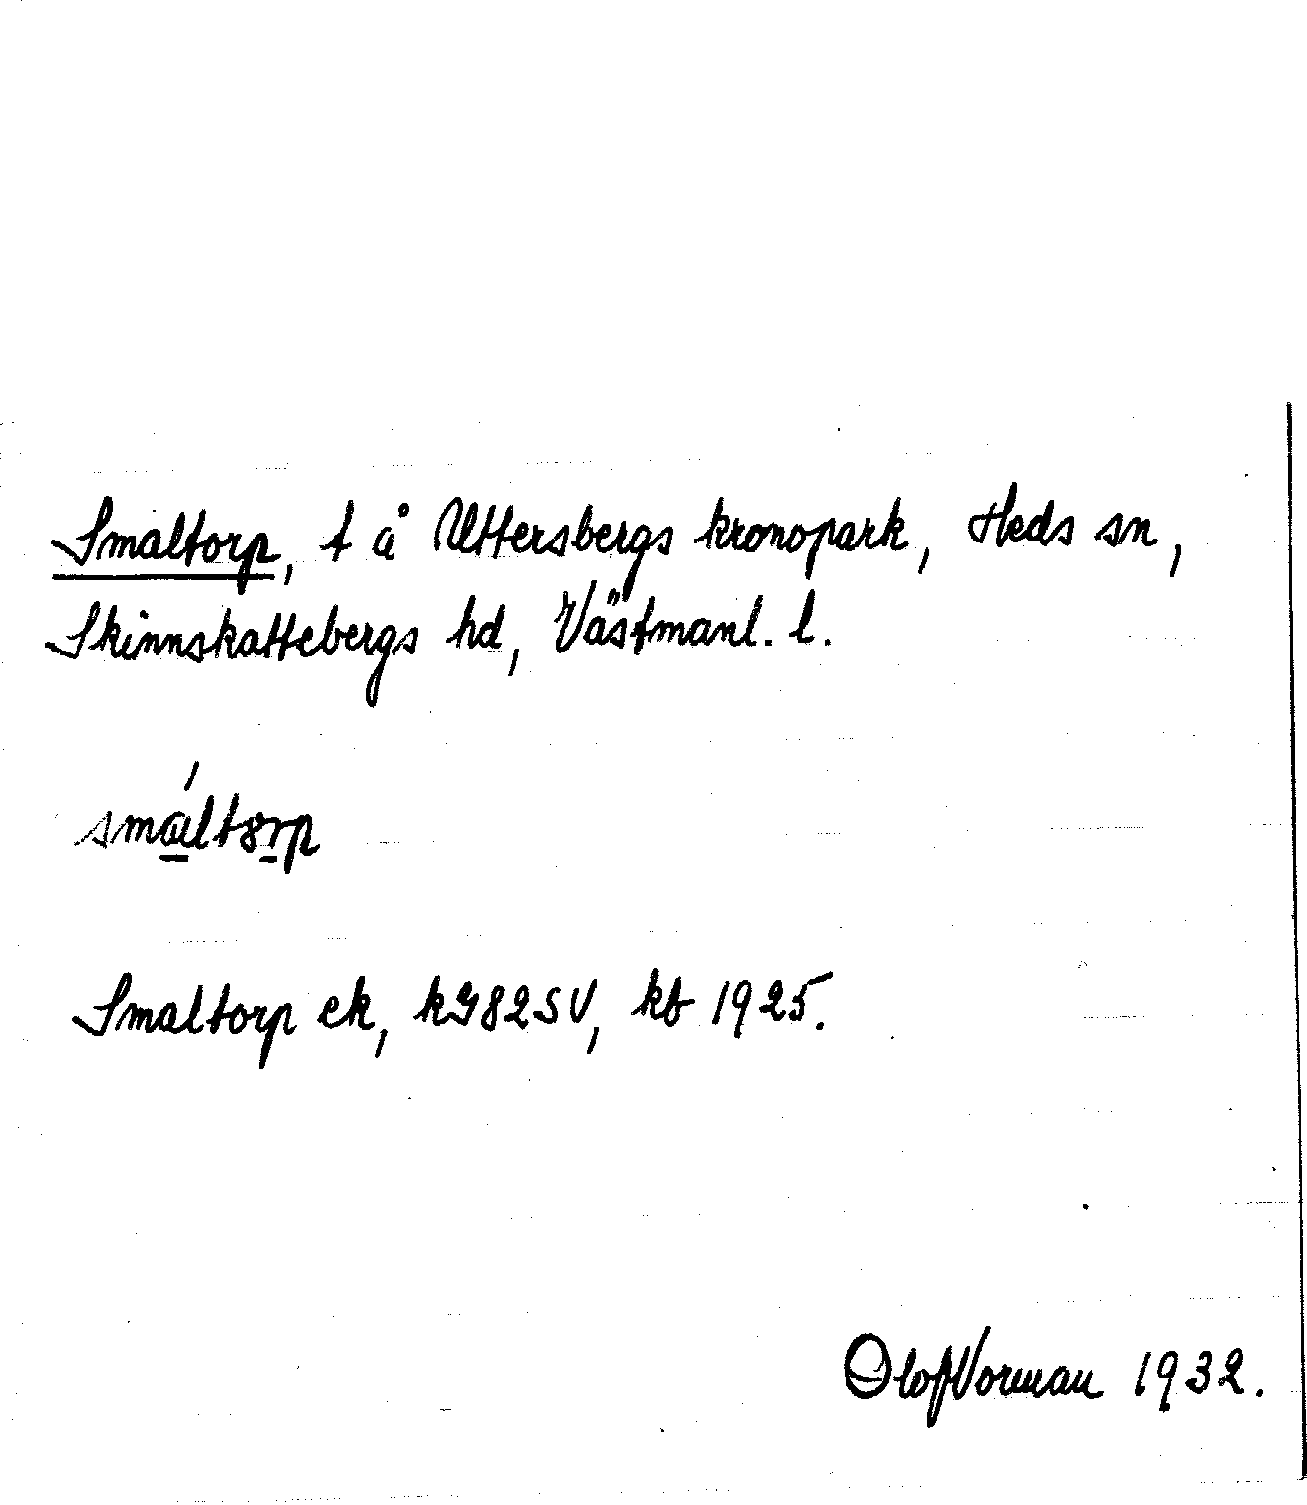 Smaltorp, t å Uttersbergs kronopark, Heds sn,
Skinnskattebergs hd, Västmanl. l.
smáltorp
Smaltorp ek, kG82SV, kb 1925.
Olof Vorman 1932.